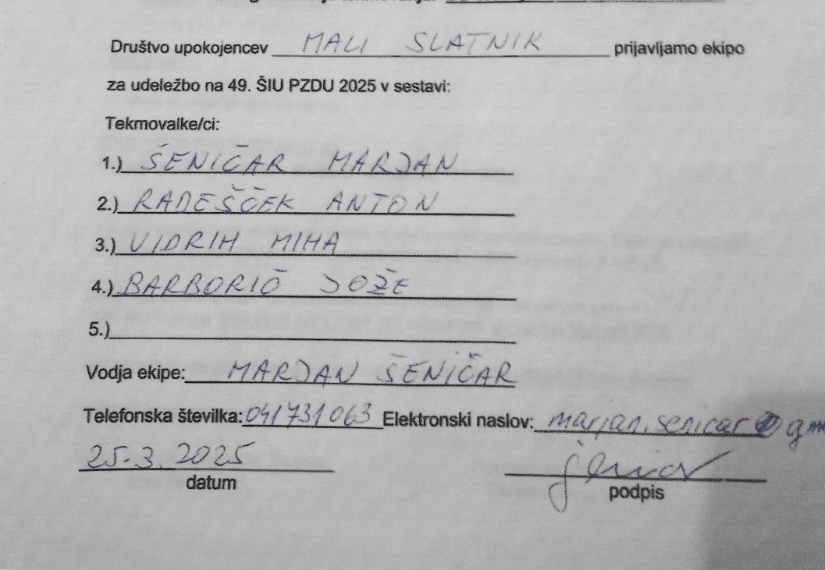 Društvo upokojencev MALI SLATNIK prijavljamo ekipo
za udeležbo na 49. ŠIU PZDU 2025 v sestavi:
Tekmovalke/ci:
1.) ŠENIČAR MARJAN
2.) RADEŠČEK ANTON
3.) VIDRIH MIHA
4.) BARBORIČ JOŽE
5.)
Vodja ekipe: MARJAN ŠENIČAR
Telefonska številka: 041731063 Elektronski naslov: marjan.senicar@gm
25.3.2025
datum podpis